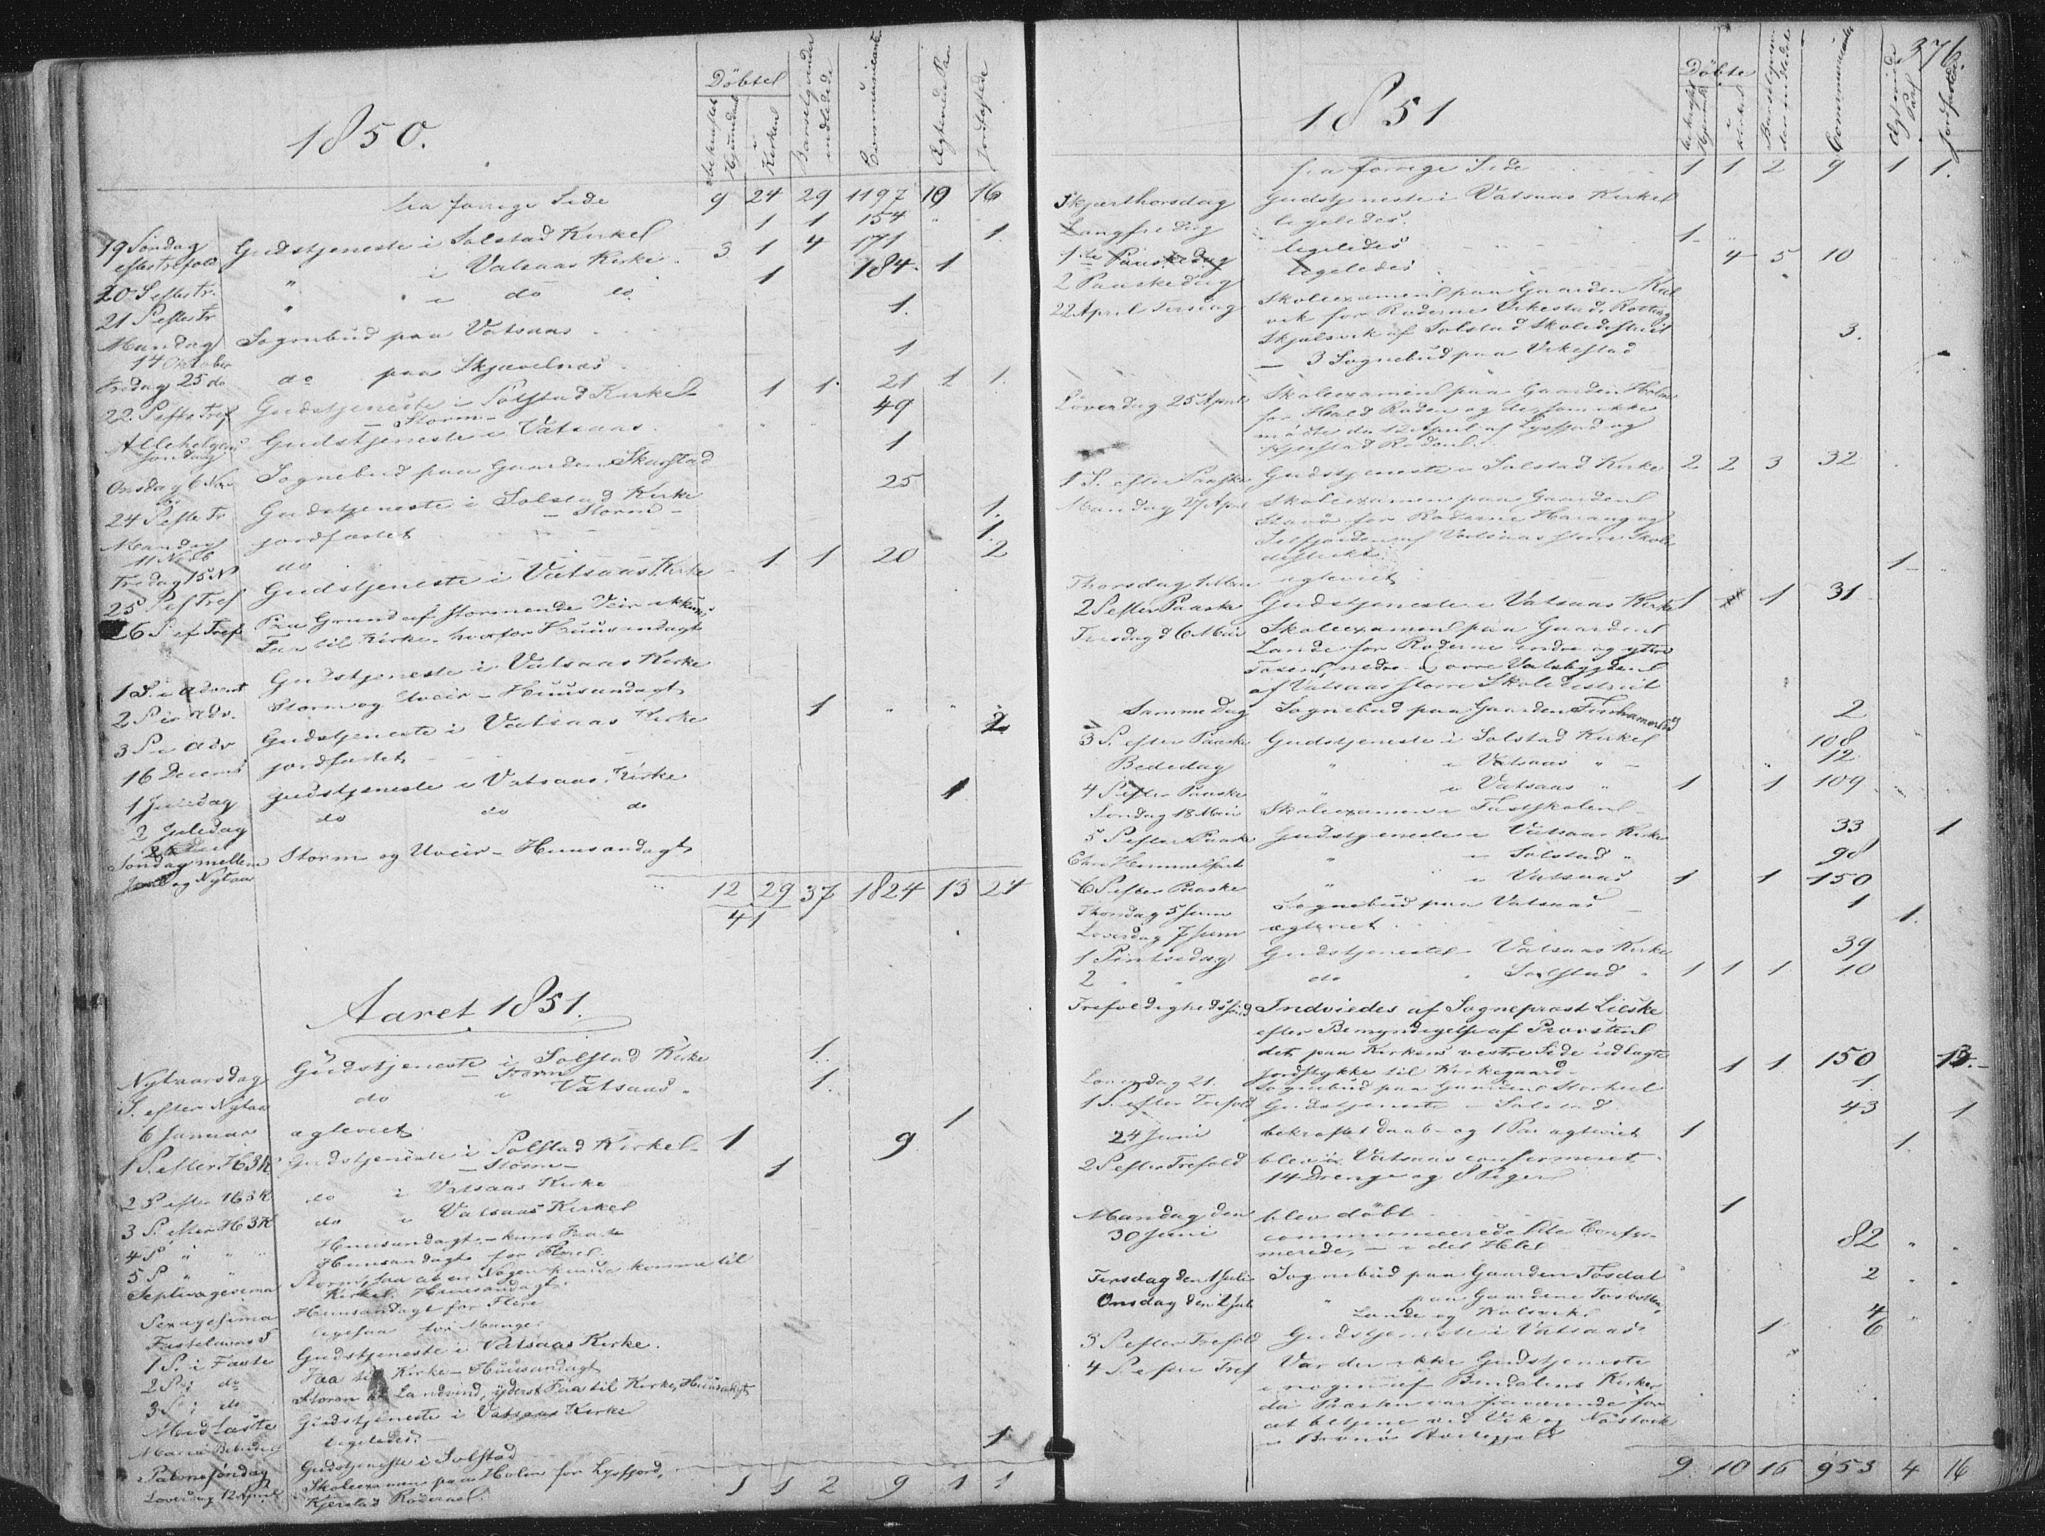 1850.
Döbte
bekræftet Hjemdøbt
i Kirken
Barselqvinder indledede
Communicanter
Ægteviede Par
Jordfæstede
fra forrige Side 9 24 29 1197 10 16
19 Søndag efter Trefold Gudstjeneste i Solstad Kirke 1 1 154
20 S efter Tr. " i Vatsaas Kirke 3 1 4 171 1.
21 S efter Tr " i do do 1 184 1
Mandag 14 Oktober Sognebud paa Vatsaas 1.
Fredag 25 do do paa Skjævelnæs 1
22 S efter Tref Gudstjeneste i Solstad Kirke 1 1 21 1 1.
- Storm -
Allehelgens Søndag Gudstjeneste i Vatsaas 49
Onsdag 6 Nov Sognebud paa Gaarden Skarstad 1
24 S efter Tr Gudstjeneste i Solstad Kirke 25
- Storm -
Mandag 11 Novb jordfæstet 1.
Fredag 15 N do 1.
25 S ef Tref Gudstjeneste i Vatsaas Kirke 1 1 20 2
26 S ef Tref Paa Grund af stormende Veir ikke
Faa til Kirke hvorfor Huusandagt
1 S. i Advent Gudstjeneste i Vatsaas Kirke
2 S i Adv. Storm og Uveir - Huusandagt
3 S i Adv Gudstjeneste i Vatsaas Kirke 1
16 Decemb jordfæstet 2
1 Juledag Gudstjeneste i Vatsaas Kirke
2 Juledag do do do 1
Søndag mellem Juul og Nytaar Storm og Uveir - Huusandagt
12 29 37 1824 13 24
41
Aaret 1851.
Nytaarsdag Gudstjeneste i Solstad Kirke 1.
- Storm -
S. efter Nytaar do i Vatsaas " 1.
6 Januar ægteviet 1
1 S. efter H3K Gudstjeneste i Solstad Kirke 1 9
- Storm - 1
2 S efter H3K do i Vatsaas Kirke
3 S. efter H3K do i Vatsaas Kirke
4 S " " Huusandagt - kuns Faae
5 S " " Huusandagt for Flere
Septuagesima Storm, saa at en Nogen kunde komme til
Kirke. Huusandagt
Sexagesima Huusandagt for Flere
Fastelavns S ligesaa for Mange
1 S. i Faste Gudstjeneste i Vatsaas Kirke.
2 S. i do Faa til Kirke - Huusandagt
3 S i do Storm af Landvind, yderst Faa til Kirke, Huusandagt
Midfaste Gudstjeneste i Vatsaas Kirke
Mariæ Bebud. ligeledes 1
Palmesøndag Gudstjeneste i Solstad
Løverdag 12 April Skoleexamen paa Holm for Lysfjord,
Kjerstad Roderne. 1 1 2 9 1 1
376.
1851
Döbte
bekræftet Hjemd
i Kirken
Barselqvinder indledede
Communicanter
Ægteviede Par
Jordfæstede
fra forrige Side 1 1 2 9 1 1.
Skjærthorsdag Gudstjeneste i Vatsaas Kirke
Langfredag ligeledes.
1ste Paaskedag ligeledes 1
2 Paaskedag ligeledes 4 5 10
22 April Tirsdag Skoleexamen paa Gaarden Kal
vik for Roderne Vikestad, Roting
Skjelsvik af Solstad Skoledistrict
- 3 Sognebud paa Vikestad 3.
Løverdag 25 April Skoleexamen paa Gaarden Holm
for Hald Roden og dersom ikke
mødte da 12 April af Lysfjord og
Kjerstad Roden.
1 S. efter Paaske Gudstjeneste i Solstad Kirke 2 2 3 32
Mandag 27 April Skoleexamen paa Gaarden
Stavø for Roderne Harang og
Selfjorden af Vatsaas større Skole
district.
Thorsdag 1 Mai ægteviet 1
2 S efter Paaske Gudstjeneste i Vatsaas Kirke 1 1 31
Tirsdag d 6 Mai Skoleexamen paa Gaarden
Lande for Roderne indre og ytre
Tosen, nedre - øvre Vatsbygden
af Vatsaas større Skoledistrict
Samme Dag Sognebud paa Gaarden 2
3 S. efter Paaske Gudstjeneste i Solstad Kirke 108
Bededag " i Vatsaas " 12
4 S efter Paaske " i Vatsaas " 1 1 109
Søndag 18 Mai Skoleexamen i Fastskolen
5 S efter Paaske Gudstjeneste i Vatsaas Kirke 33 1
Chri Himmelfart " i Solstad " 98
6 S efter Paaske " i Vatsaas 1 1 150
Thorsdag 5 Juni Sognebud paa Vatsaas 1
Løverdag 7 Juni ægteviet 1.
1 Pintsedag Gudstjeneste i Vatsaas Kirke 39
2 " do " Solstad " 1 1 1 10
Trefoldighedssønd Indviedes af Sogneprost Lieske
efter Bemyndigelse af Provsten
det paa Kirkens vestre Side udlagte
Jordstykke til Kirkegaard. 1 1 150 13.
Løverdag 21. Sognebud paa Gaarden 1.
1 S. efter Trefold Gudstjeneste i Solstad 43 1
24 Juni bekræftet daab og 1 Par ægteviet 1 1.
2 S efter Trefold blev i Vatsaas confirmeret
14 Drenge og 8 Piger
Mandag den blev döbt 1
30 Juni communicerede Confir-
merede, - i det Hele 82
Tirsdag den 1 Juli Sognebud paa Gaarden Tosdal 2
Onsdag den 2 Juli " paa Gaardene Tosbotten,
Lande og Kalsvik 4
3 S efter Trefold Gudstjeneste i Vatsaas 1 6
4 S. efter Tref Var der ikke Gudstjeneste
i nogen af Bindalens Kirker
da Præsten var fraværende for
at betjene ved Vik og Nøstvik
i Brønø Præstegjeld
9 10 15 953 4 16